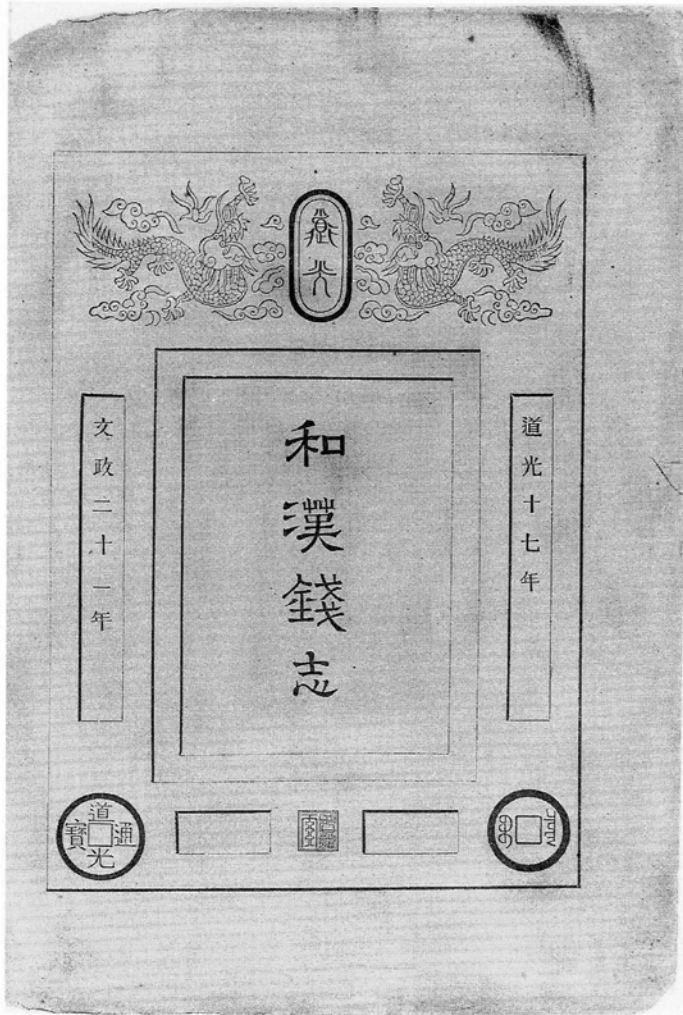 道光
道光十七年
和漢錢志
文政二十一年
道光通寶